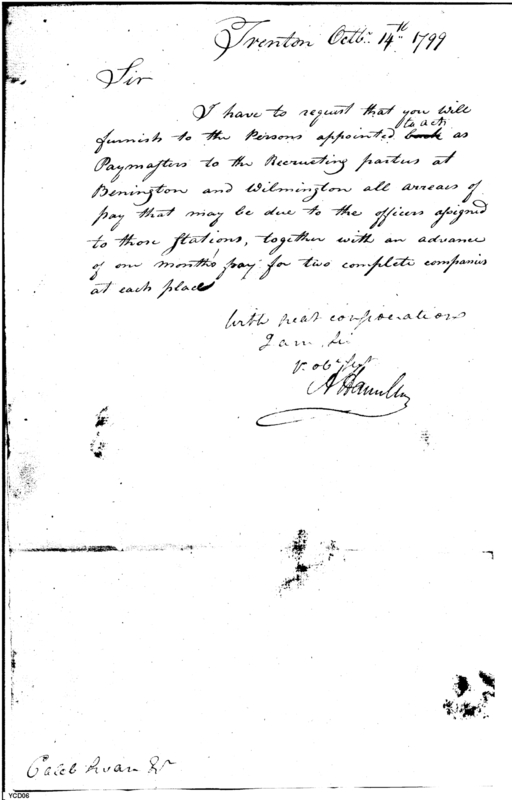 Trenton Octbr. 14th 1799
Sir
I have to request that you will
to act
furnish to the Persons appointed as
Paymasters to the Recruiting parties at
Benington and Wilmington all arrears of
pay that may be due to the officers assigned
to those Stations, together with an advance
of one month's pay for two complete companies
at each place
With great consideration
I am, Sir
Yr. obt. Servt
A Hamilton
Caleb Swan Esr
YCD06